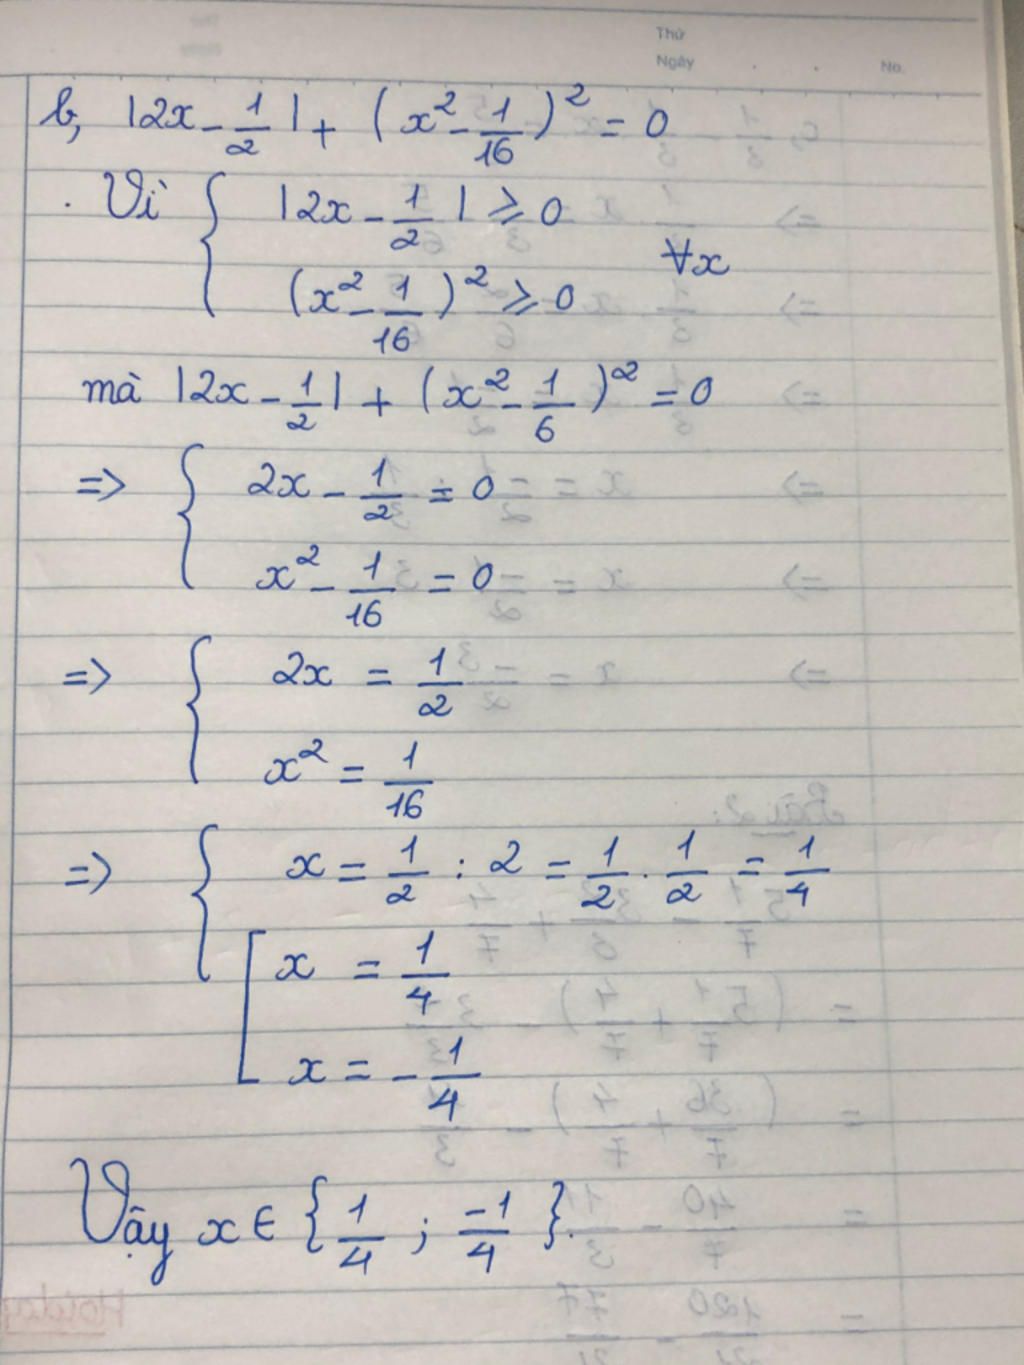 Thứ
Ngày . . No.
b, |2x - 1/2| + (x² - 1/16)² = 0
. Vì { |2x - 1/2| ⩾ 0
∀x
(x² - 1/16)² ⩾ 0
mà |2x - 1/2| + (x² - 1/6)² = 0
=> { 2x - 1/2 = 0
x² - 1/16 = 0
=> { 2x = 1/2
x² = 1/16
=> { x = 1/2 : 2 = 1/2 . 1/2 = 1/4
[ x = 1/4
x = - 1/4
Vậy x ∈ { 1/4 ; -1/4 }.